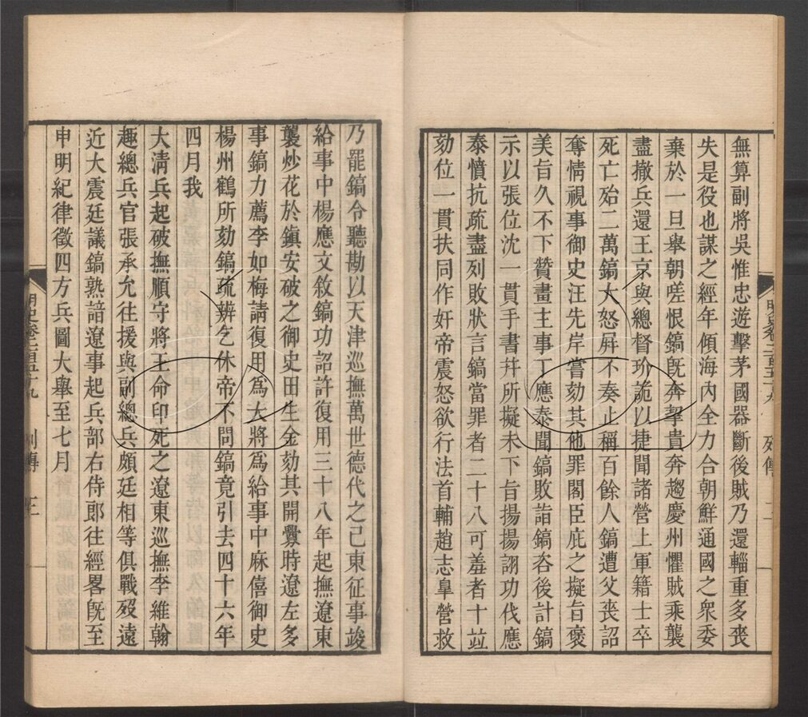 無算副將吳惟忠遊擊茅國器斷後賊乃還輜重多喪
失是役也謀之經年傾海內全力合朝鮮通國之衆委
棄於一旦舉朝嗟恨鎬旣奔挐貴奔趨慶州懼賊乘襲
盡撤兵還王京與總督玠詭以捷聞諸營上軍籍士卒
死亡殆二萬鎬大怒屏不奏止稱百餘人鎬遭父喪詔
奪情視事御史汪先岸嘗劾其他罪閣臣庇之擬旨褒
美旨久不下贊畫主事丁應泰聞鎬敗詣鎬咨後計鎬
示以張位沈一貫手書幷所擬未下旨揚揚詡功伐應
泰憤抗疏盡列敗狀言鎬當罪者二十八可羞者十竝
劾位一貫扶同作奸帝震怒欲行法首輔趙志臯營救
明史卷二百五十九 列傳 二
乃罷鎬令聽勘以天津巡撫萬世德代之已東征事竣
給事中楊應文敘鎬功詔許復用三十八年起撫遼東
襲炒花於鎮安破之御史田生金劾其開釁時遼左多
事鎬力薦李如梅請復用爲大將爲給事中麻僖御史
楊州鶴所劾鎬疏辨乞休帝不問鎬竟引去四十六年
四月我
大清兵起破撫順守將王命印死之遼東巡撫李維翰
趣總兵官張承允往援與副總兵頗廷相等俱戰歿遠
近大震廷議鎬熟諳遼事起兵部右侍郎往經畧旣至
申明紀律徵四方兵圖大舉至七月
明史卷二百五十九 列傳 三